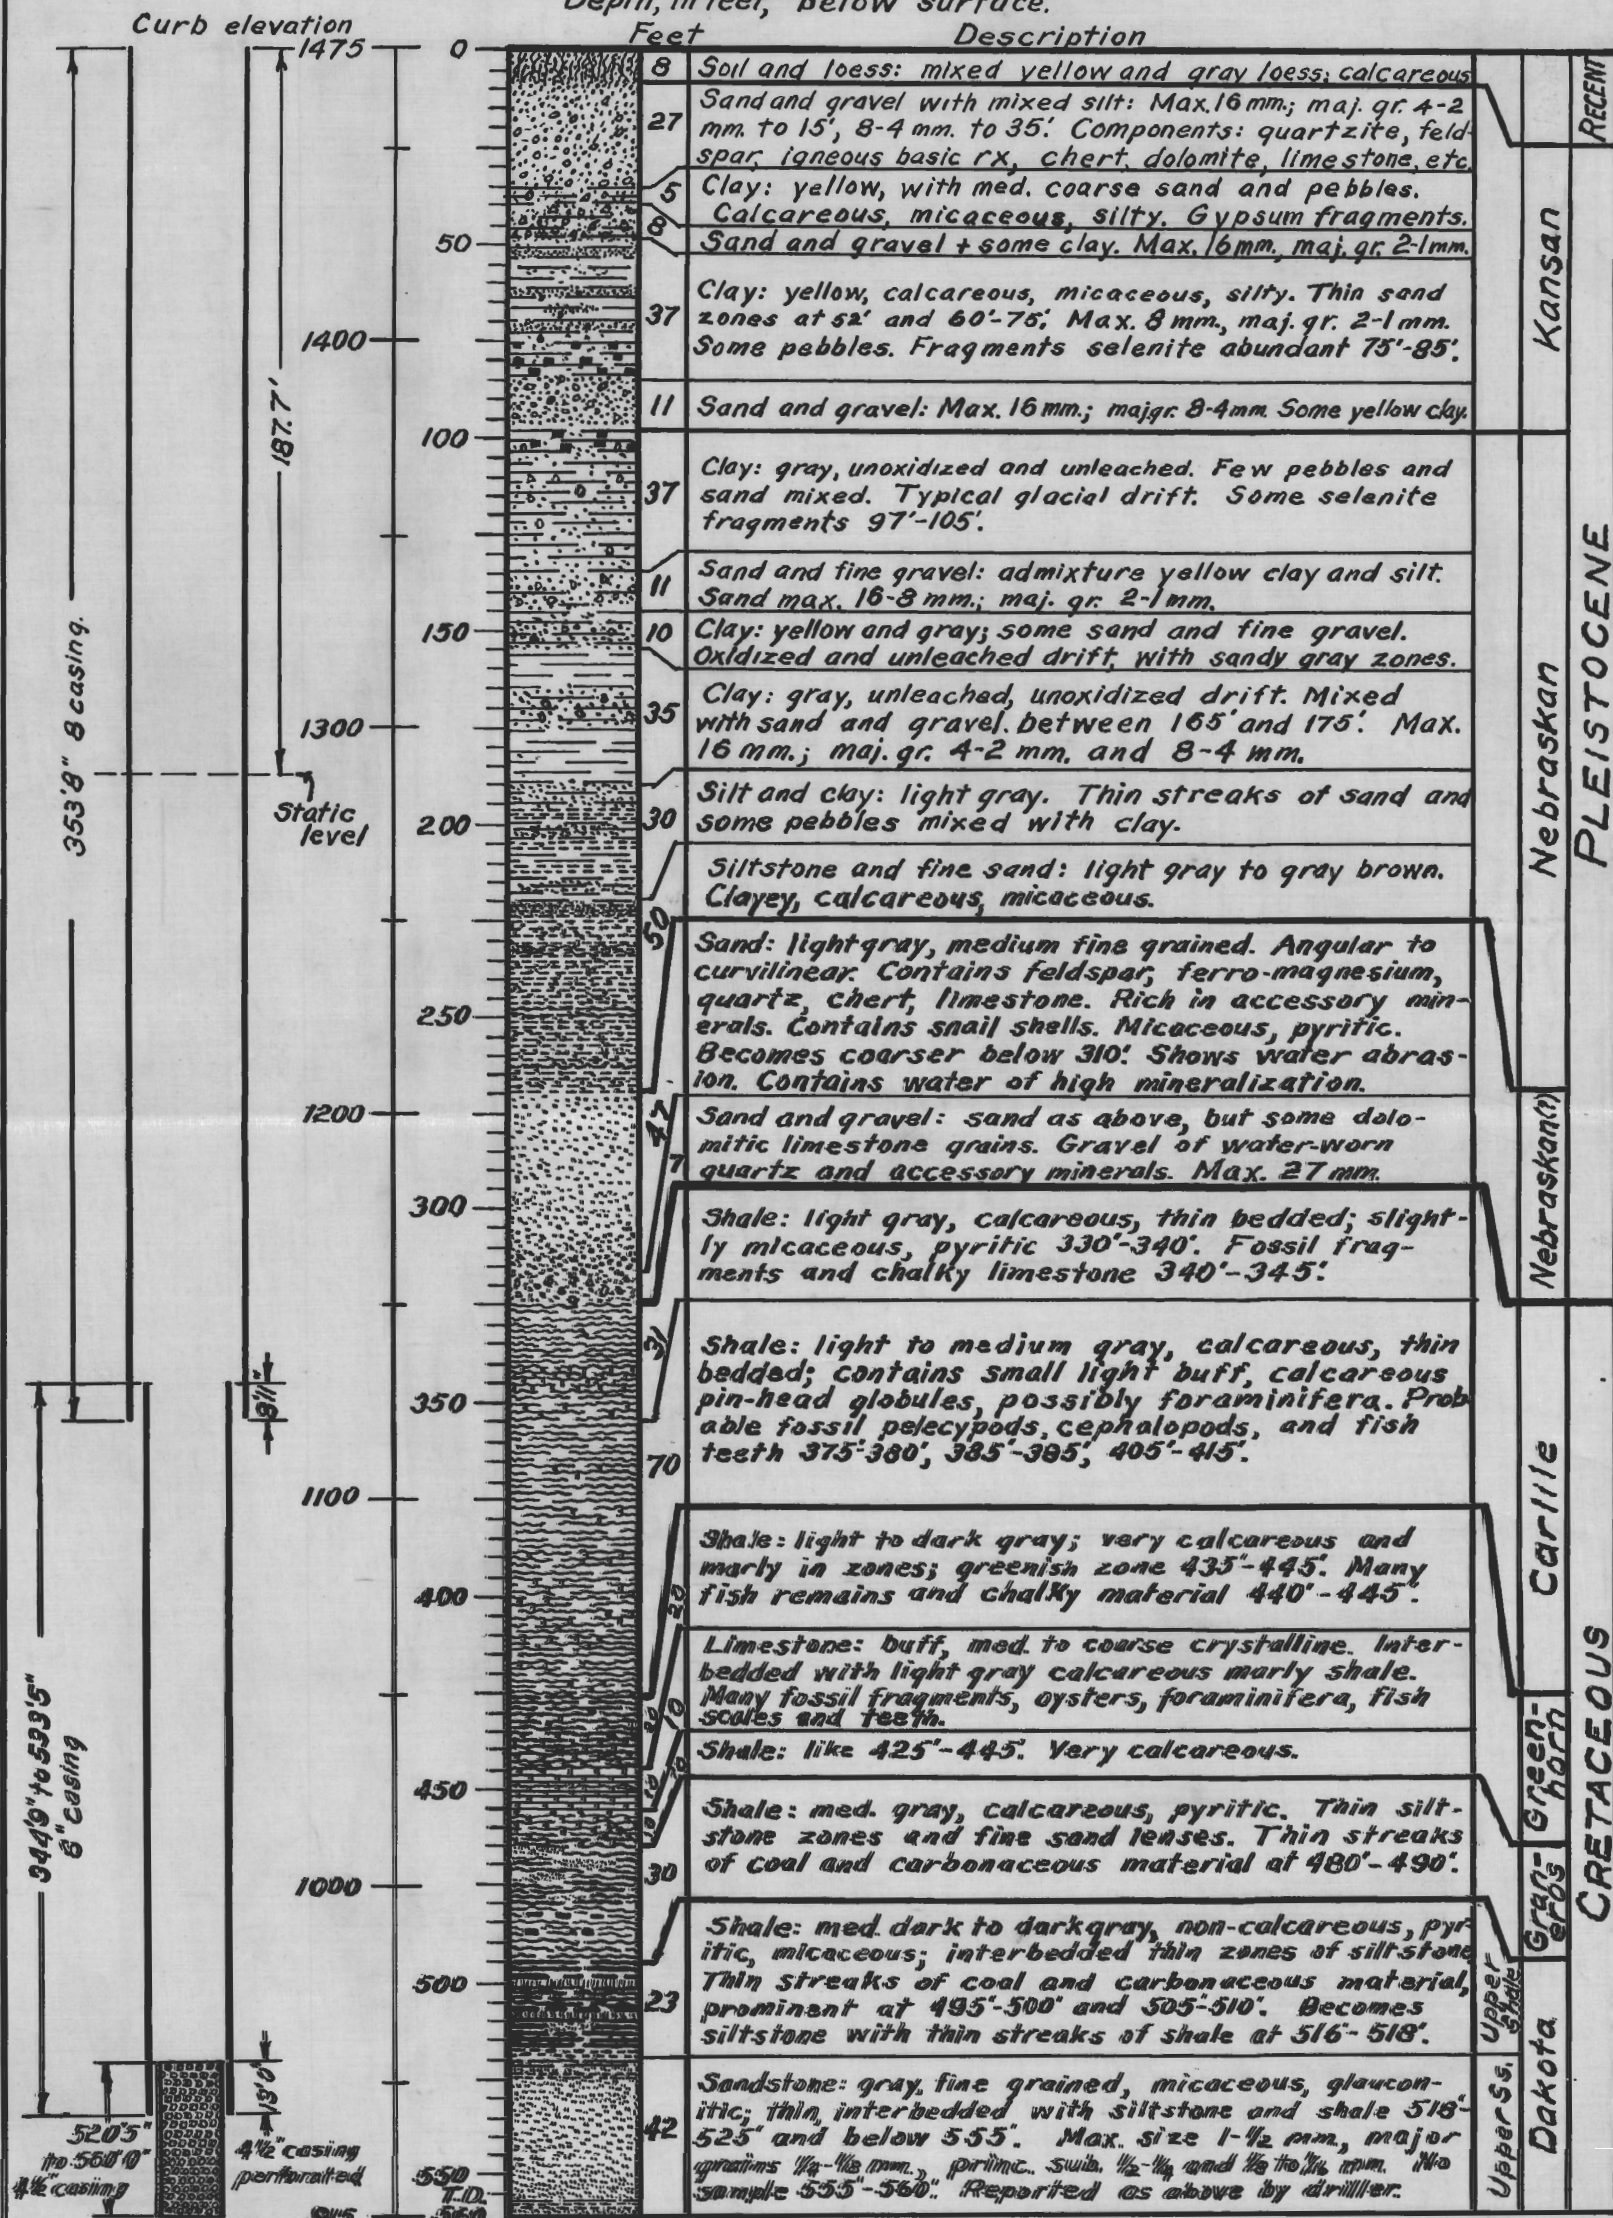 Depth, in feet, below surface.
Curb elevation
Feet
Description
1475
0
8
Soil and loess: mixed yellow and gray loess; calcareous
27
Sand and gravel with mixed silt: Max. 16 mm.; maj. gr. 4-2
mm. to 15', 8-4 mm. to 35'. Components: quartzite, feld-
spar, igneous basic rx, chert, dolomite, limestone, etc.
5
Clay: yellow, with med. coarse sand and pebbles.
Calcareous, micaceous, silty. Gypsum fragments.
8
50
Sand and gravel + some clay. Max. 16 mm., maj. gr. 2-1mm.
37
Clay: yellow, calcareous, micaceous, silty. Thin sand
zones at 52' and 60'-75'. Max. 8 mm., maj. gr. 2-1 mm.
1400
Some pebbles. Fragments selenite abundant 75'-85'.
11
Sand and gravel: Max. 16 mm.; maj gr. 8-4mm. Some yellow clay.
187.7'
100
37
Clay: gray, unoxidized and unleached. Few pebbles and
sand mixed. Typical glacial drift. Some selenite
fragments 97'-105'.
11
Sand and fine gravel: admixture yellow clay and silt.
Sand max. 16-8 mm.; maj. gr. 2-1mm.
150
10
Clay: yellow and gray; some sand and fine gravel.
Oxidized and unleached drift, with sandy gray zones.
353'8" 8 casing.
35
Clay: gray, unleached, unoxidized drift. Mixed
with sand and gravel. between 165' and 175'. Max.
1300
16 mm.; maj. gr. 4-2 mm. and 8-4 mm.
Static
level
200
30
Silt and clay: light gray. Thin streaks of sand and
some pebbles mixed with clay.
Siltstone and fine sand: light gray to gray brown.
Clayey, calcareous, micaceous.
50
Sand: light gray, medium fine grained. Angular to
curvilinear. Contains feldspar, ferro-magnesium,
quartz, chert, limestone. Rich in accessory min-
250
erals. Contains snail shells. Micaceous, pyritic.
Becomes coarser below 310'. Shows water abras-
ion. Contains water of high mineralization.
1200
47
Sand and gravel: sand as above, but some dolo-
mitic limestone grains. Gravel of water-worn
7
quartz and accessory minerals. Max. 27 mm.
300
Shale: light gray, calcareous, thin bedded; slight-
ly micaceous, pyritic 330'-340'. Fossil frag-
ments and chalky limestone 340'-345'.
31
Shale: light to medium gray, calcareous, thin
bedded; contains small light buff, calcareous
8'11"
350
pin-head globules, possibly foraminifera. Prob
able fossil pelecypods, cephalopods, and fish
70
teeth 375'-380', 385'-385', 405'-415'.
1100
Shale: light to dark gray; very calcareous and
marly in zones; greenish zone 435'-445'. Many
400
20
fish remains and chalky material 440'-445'.
Limestone: buff, med. to coarse crystalline. Inter-
bedded with light gray calcareous marly shale.
Many fossil fragments, oysters, foraminifera, fish
10
scales and teeth.
Shale: like 425'-445'. Very calcareous.
344'9" to 533'5"
6" casing
450
Shale: med. gray, calcareous, pyritic. Thin silt-
stone zones and fine sand lenses. Thin streaks
30
of coal and carbonaceous material at 480'-490'.
1000
Shale: med. dark to dark gray, non-calcareous, pyr-
itic, micaceous; interbedded thin zones of siltstone
500
Thin streaks of coal and carbonaceous material,
23
prominent at 495'-500' and 505'-510'. Becomes
siltstone with thin streaks of shale at 516'-518'.
13'0"
Sandstone: gray, fine grained, micaceous, glaucon-
itic; thin, interbedded with siltstone and shale 518'-
42
525' and below 555'. Max. size 1-1/2 mm., major
grains 1/4-1/8 mm., princ. sub. 1/2-1/4 and 1/8 to 1/16 mm. No
sample 555'-560'. Reported as above by driller.
520'5"
to 560'0"
4½" casing
4½" casing
perforated
550
T.D.
560
915
RECENT
Kansan
Nebraskan
PLEISTOCENE
Nebraskan(?)
Carlile
Green-
horn
Gran-
eros
CRETACEOUS
Upper
Shale
Upper Ss.
Dakota